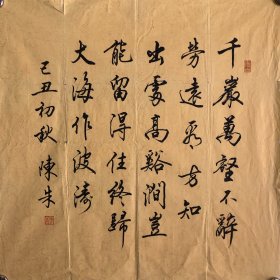 千巖萬壑不辭
勞遠看方知
出處高谿澗豈
能留得住終歸
大海作波濤
己丑初秋陳朱